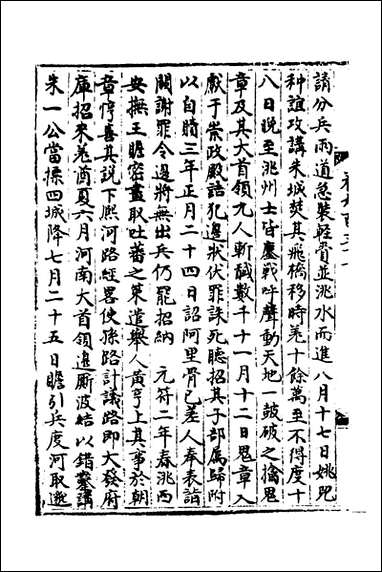 請分兵兩道急裝輕賫並洮水而進八月十七日姚兕
种誼攻講朱城焚其飛橋移時羌十餘萬至不得度十
八日晩至洮州士皆鏖戰呼聲動天地一鼓破之擒鬼
章及其大首領九人斬馘數千十一月十二日鬼章入
獻于崇政殿詰犯邊狀伏罪誅死聽招其子部屬歸附
以自贖三年正月二十四日詔阿里骨已差人奉表詣
闕謝罪令邊將無出兵仍罷招納 元符二年春洮西
安撫王瞻密畫取吐蕃之策遣舉人黃亨上其事於朝
章惇喜其說下熙河路經畧使孫路計議路即大發府
庫招來羌酋夏六月河南大首領邊厮波結以錯鑿講
朱一公當摽四城降七月二十五日瞻引兵度河取邈